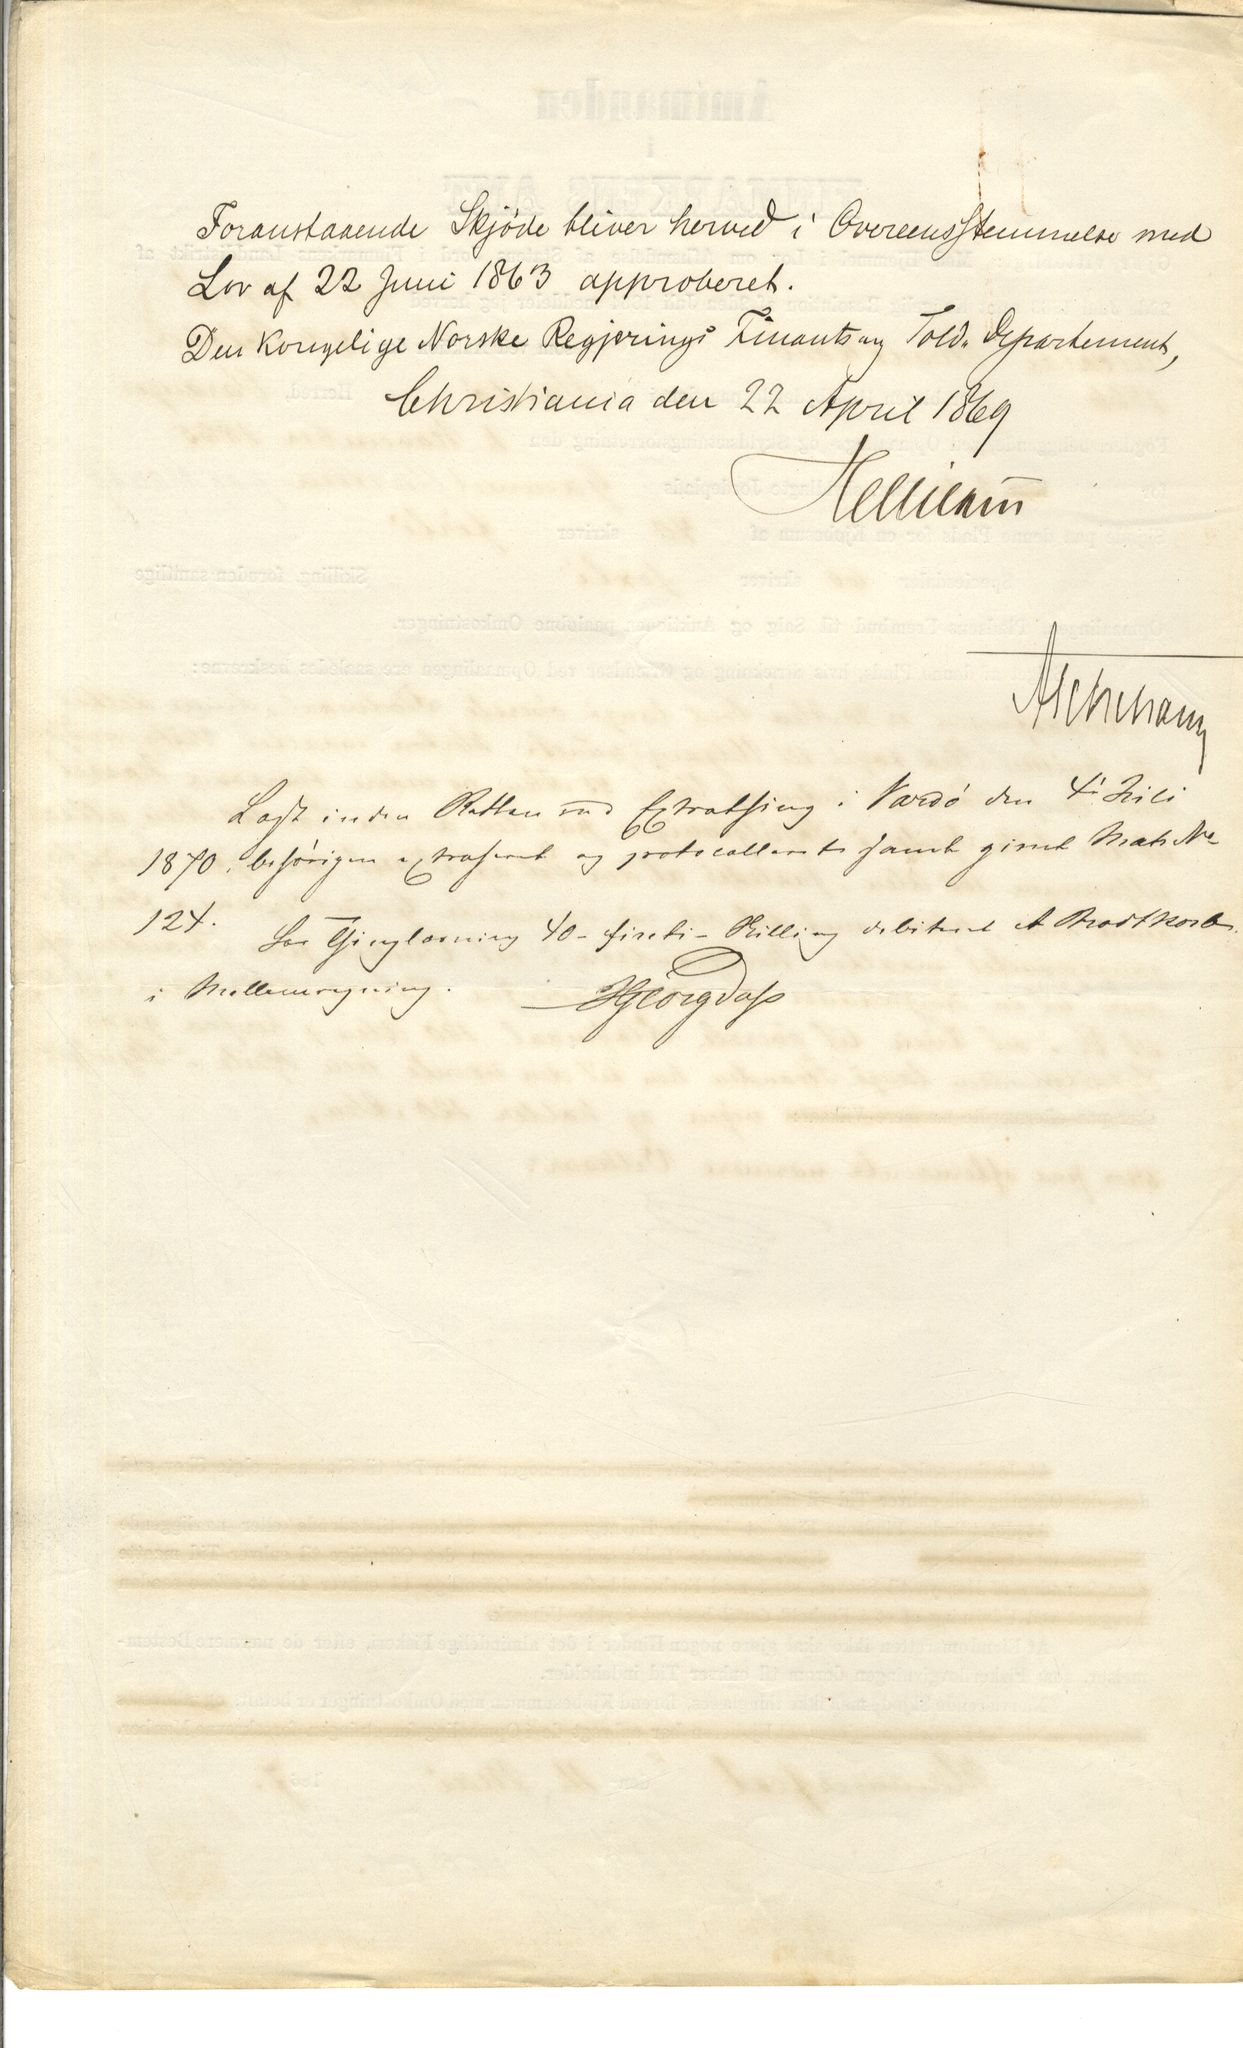 Foranstaaende Skjøde bliver herved i Overeensstemmelse med
Lov af 22 Juni 1863 approberet.
Den Kongelige Norske Regjerings Finants og Told-Departement,
Christiania den 22 April 1869
Lagt inden Retten ved Extrathing i Vardø den 4de Juli
1870, behørigen extraheret og protocolleret samt givet Matr. No
124. For Thinglæsning 40 - firti - Skilling debiteret A Brodtkorb
i Mellemregning.